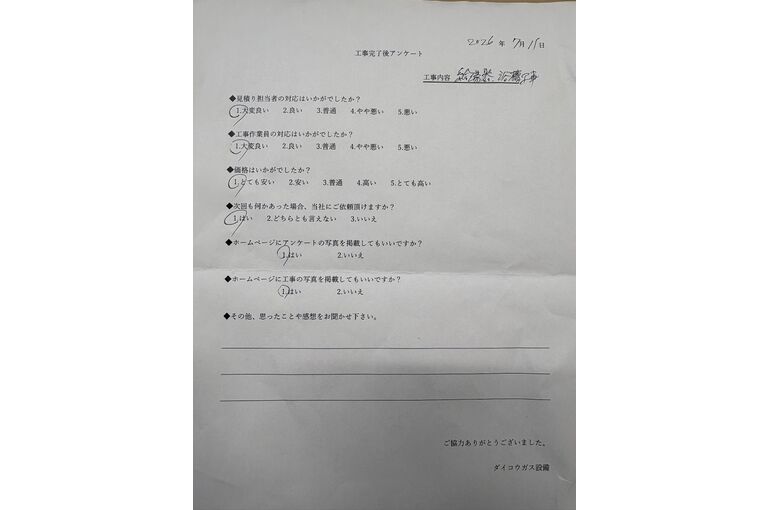 2026年 7月 15日
工事完了後アンケート
工事内容 給湯器、浴槽工事
◆見積り担当者の対応はいかがでしたか?
1.大変良い 2.良い 3.普通 4.やや悪い 5.悪い
◆工事作業員の対応はいかがでしたか?
1.大変良い 2.良い 3.普通 4.やや悪い 5.悪い
◆価格はいかがでしたか?
1.とても安い 2.安い 3.普通 4.高い 5.とても高い
◆次回も何かあった場合、当社にご依頼頂けますか?
1.はい 2.どちらとも言えない 3.いいえ
◆ホームページにアンケートの写真を掲載してもいいですか?
1.はい 2.いいえ
◆ホームページに工事の写真を掲載してもいいですか?
1.はい 2.いいえ
◆その他、思ったことや感想をお聞かせ下さい。
ご協力ありがとうございました。
ダイコウガス設備